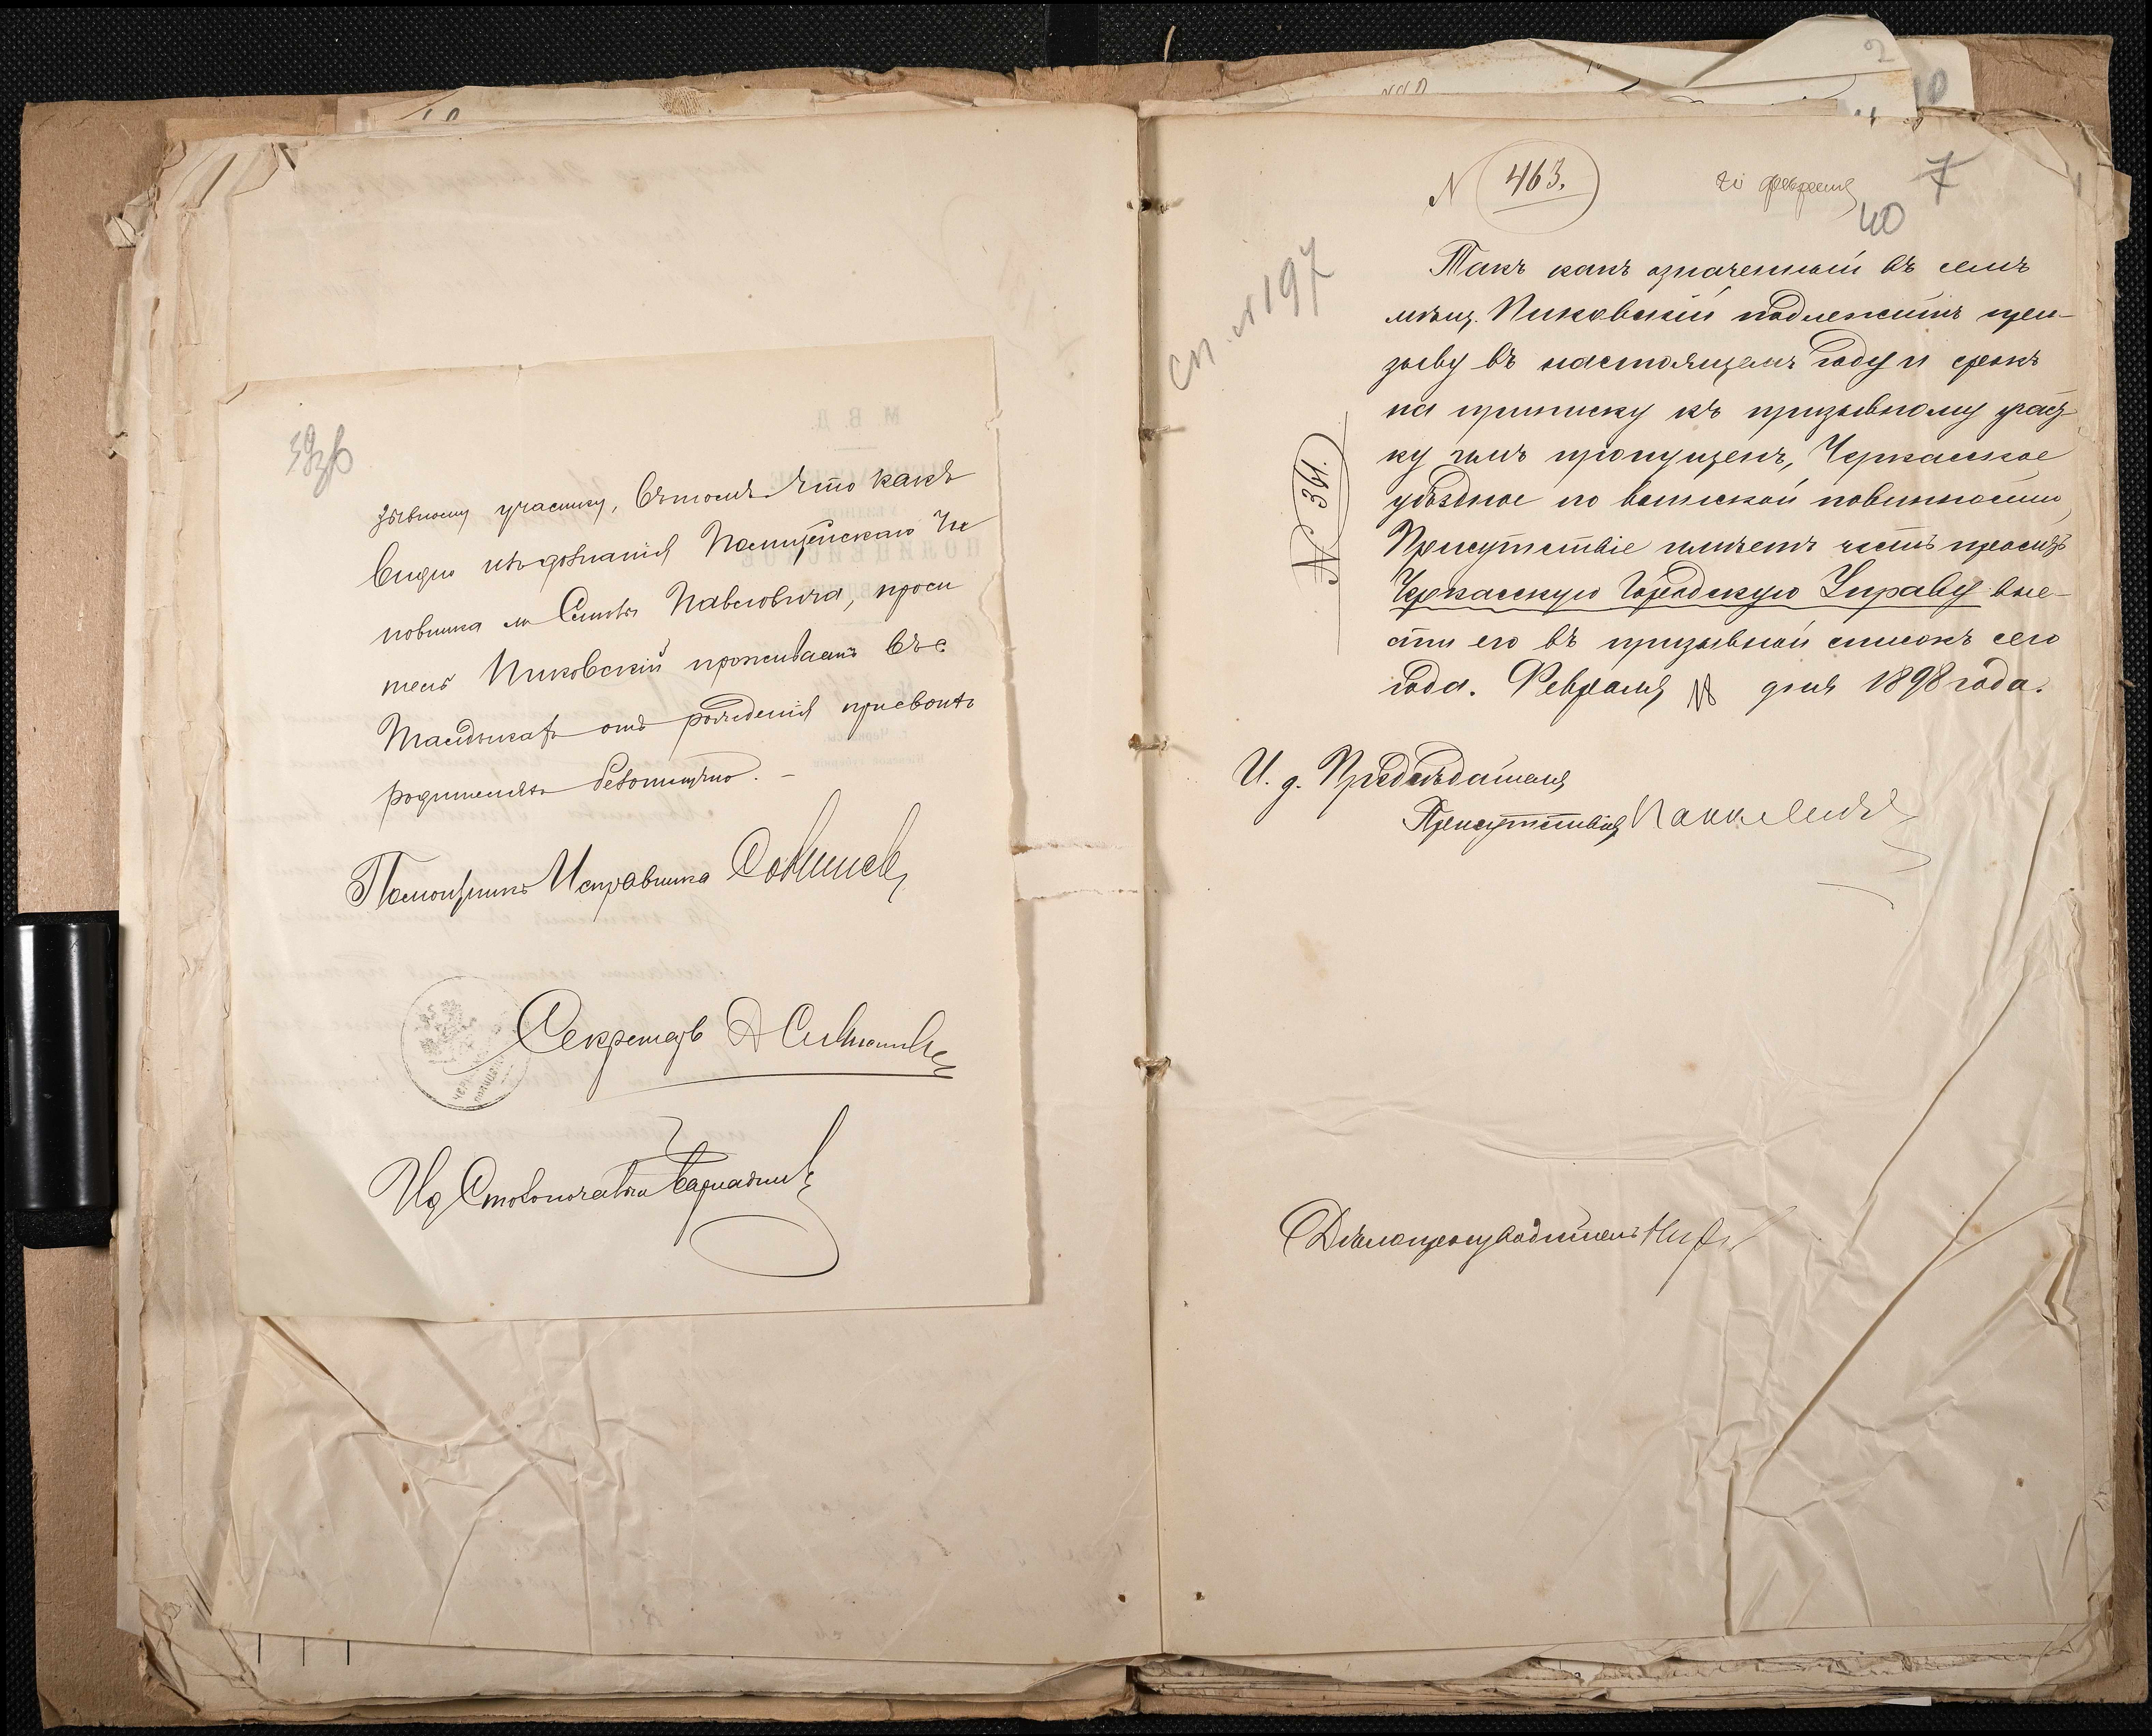 зывному участку, въ томъ что какъ
видно изъ дознанія Полицейскаго Чи
новника м Смелы Павловича, проси
тель Пиковскій проживаетъ въ с.
Ташлыкахъ отъ рожденія при своихъ
родителяхъ безотлучно. –
Помощникъ Исправника
Секретарь
Ид Столоначальника
N 463.
20 февраля
7
40
Сп. № 197
№ 341.
Такъ какъ означенный въ семъ
мѣщ. Пиковскій подлежитъ при-
зыву въ настоящемъ году и срокъ
на приписку къ призывному учас-
ку имъ пропущенъ, Черкасское
уѣздное по воинской повинности
Присутствіе имѣетъ честь просить
Черкасскую Городскую Управу вне-
сти его въ призывной списокъ сего
года. Февраля 18 дня 1898 года.
И. д. Предсѣдателя
Присутствія
Дѣлопроизводитель